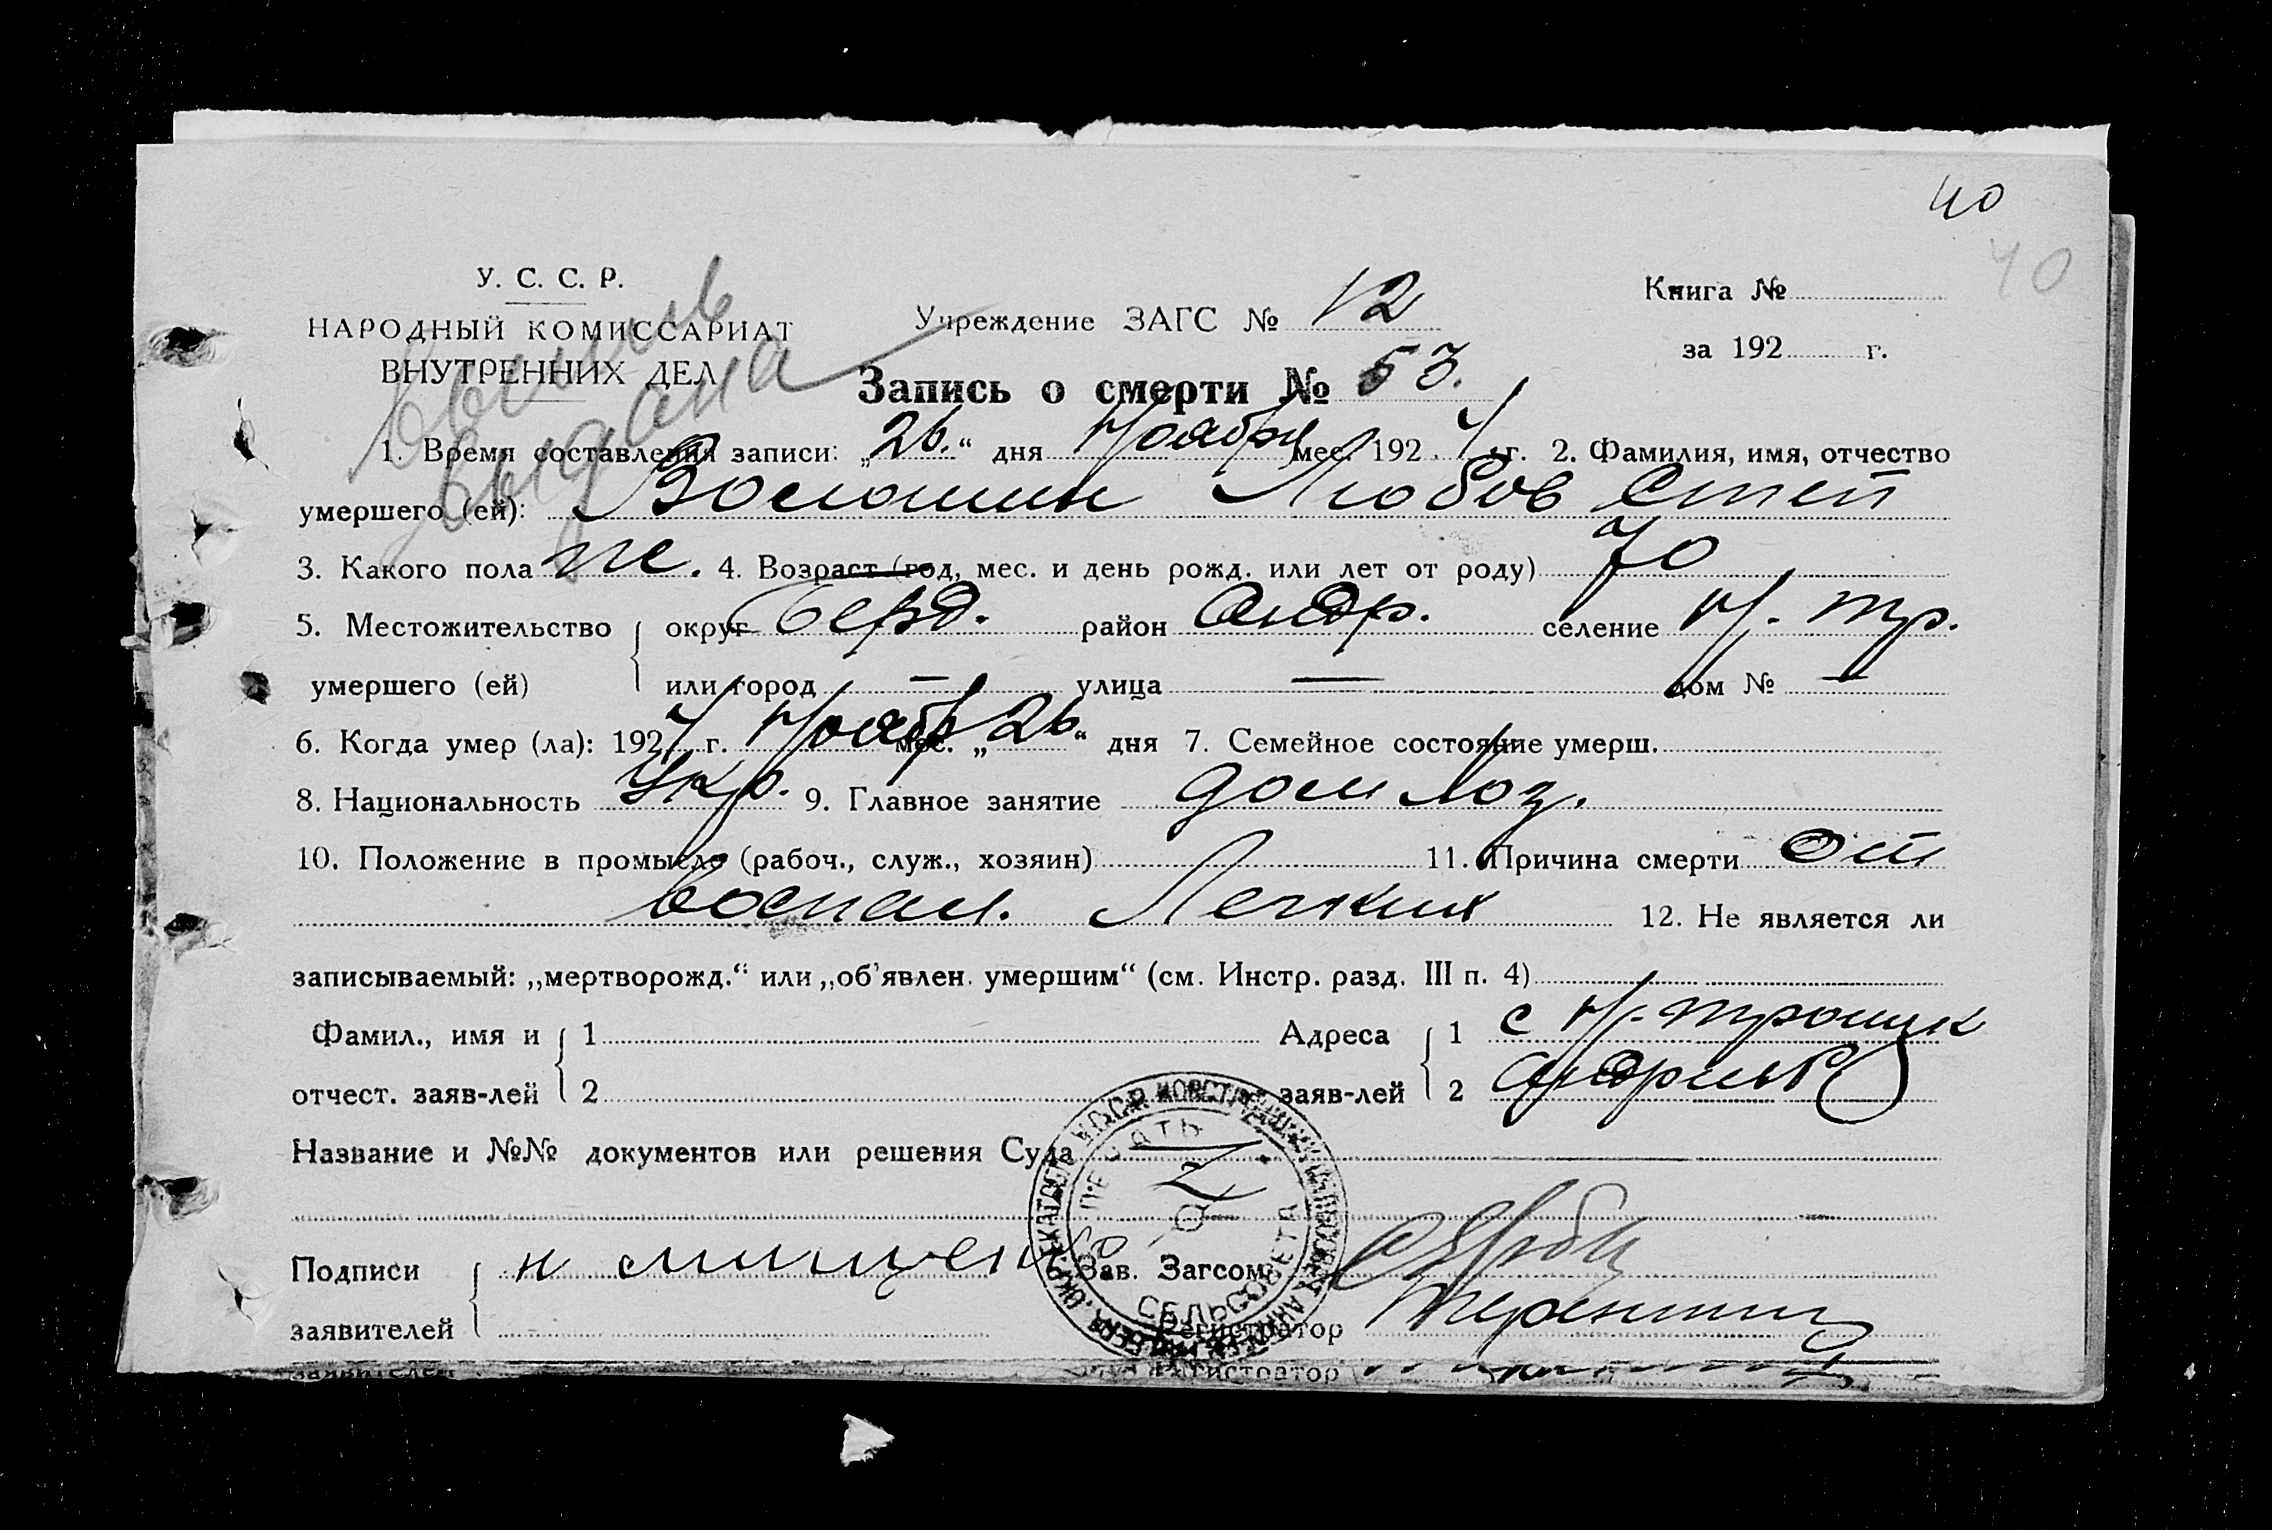 40
40
У. С. С. Р.
НАРОДНЫЙ КОМИССАРИАТ
ВНУТРЕННИХ ДЕЛ
выпись
выдана
Учреждение ЗАГС № 12
Книга №
за 192 г.
Запись о смерти № 53.
1. Время составления записи: „26.“ дня Ноября мес. 192 г. 2. Фамилия, имя, отчество
умершего (ей): Волошин Любов Степ
3. Какого пола ж. 4. Возраст (год, мес. и день рожд. или лет от роду) 70
5. Местожительство округ Берд. район Андр. селение Н. Тр.
умершего (ей) или город — улица — дом № —
6. Когда умер (ла): 192 г. Ноябр мес. „26“ дня 7. Семейное состояние умерш.
8. Национальность Укр. 9. Главное занятие дом хоз.
10. Положение в промысле (рабоч., служ., хозяин) 11. Причина смерти От
воспал. Легких
12. Не является ли
записываемый: „мертворожд.“ или „об'явлен. умершим“ (см. Инстр. разд. III п. 4)
Фамил., имя и 1 Адреса 1 с Н. Троицк
отчест. заяв-лей 2 заяв-лей 2
Название и №№ документов или решения Суда
Подписи Зав. Загсом
заявителей Регистратор
ПЕЧАТЬ
СЕЛЬСОВЕТА
заявителей Регистратор